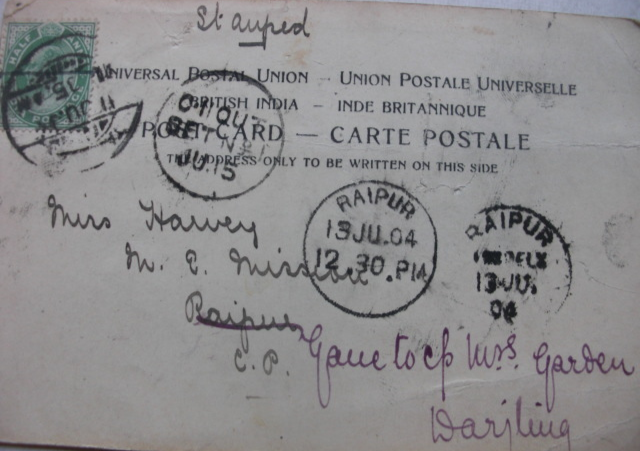 Stamped
HALF ANNA
UNIVERSAL POSTAL UNION – UNION POSTALE UNIVERSELLE
BRITISH INDIA – INDE BRITANNIQUE
POST CARD — CARTE POSTALE
THE ADDRESS ONLY TO BE WRITTEN ON THIS SIDE
JU.15
RAIPUR
13 JU.04
12.30.PM
RAIPUR
13 JU.
04
Miss Harvey
M. E. Mission
Raipur
C. P.
Mrs. Garden
Darjling